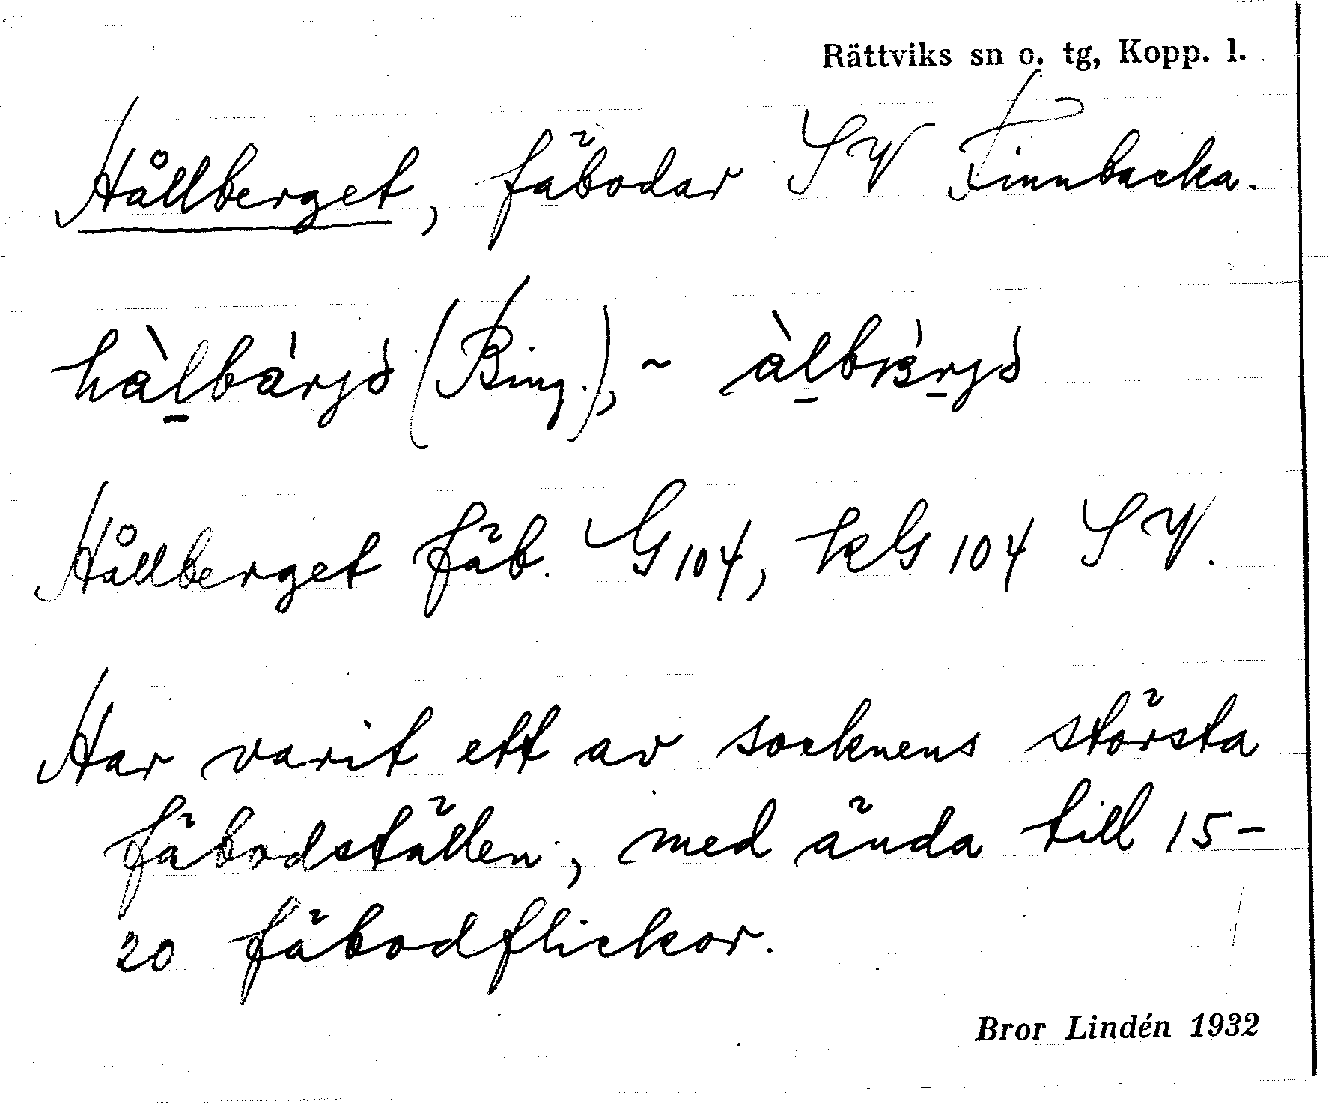 Rättviks sn o. tg, Kopp. l.
Hållberget, fäbodar SV Finnbacka.
hàl̠bárjò (Bing.), ~ àl̠bä́r̠jò
Hållberget fäb. G104, kG 104 SV.
Har varit ett av socknens största
fäbodställen, med ända till 15-
20 fäbodflickor.
Bror Lindén 1932